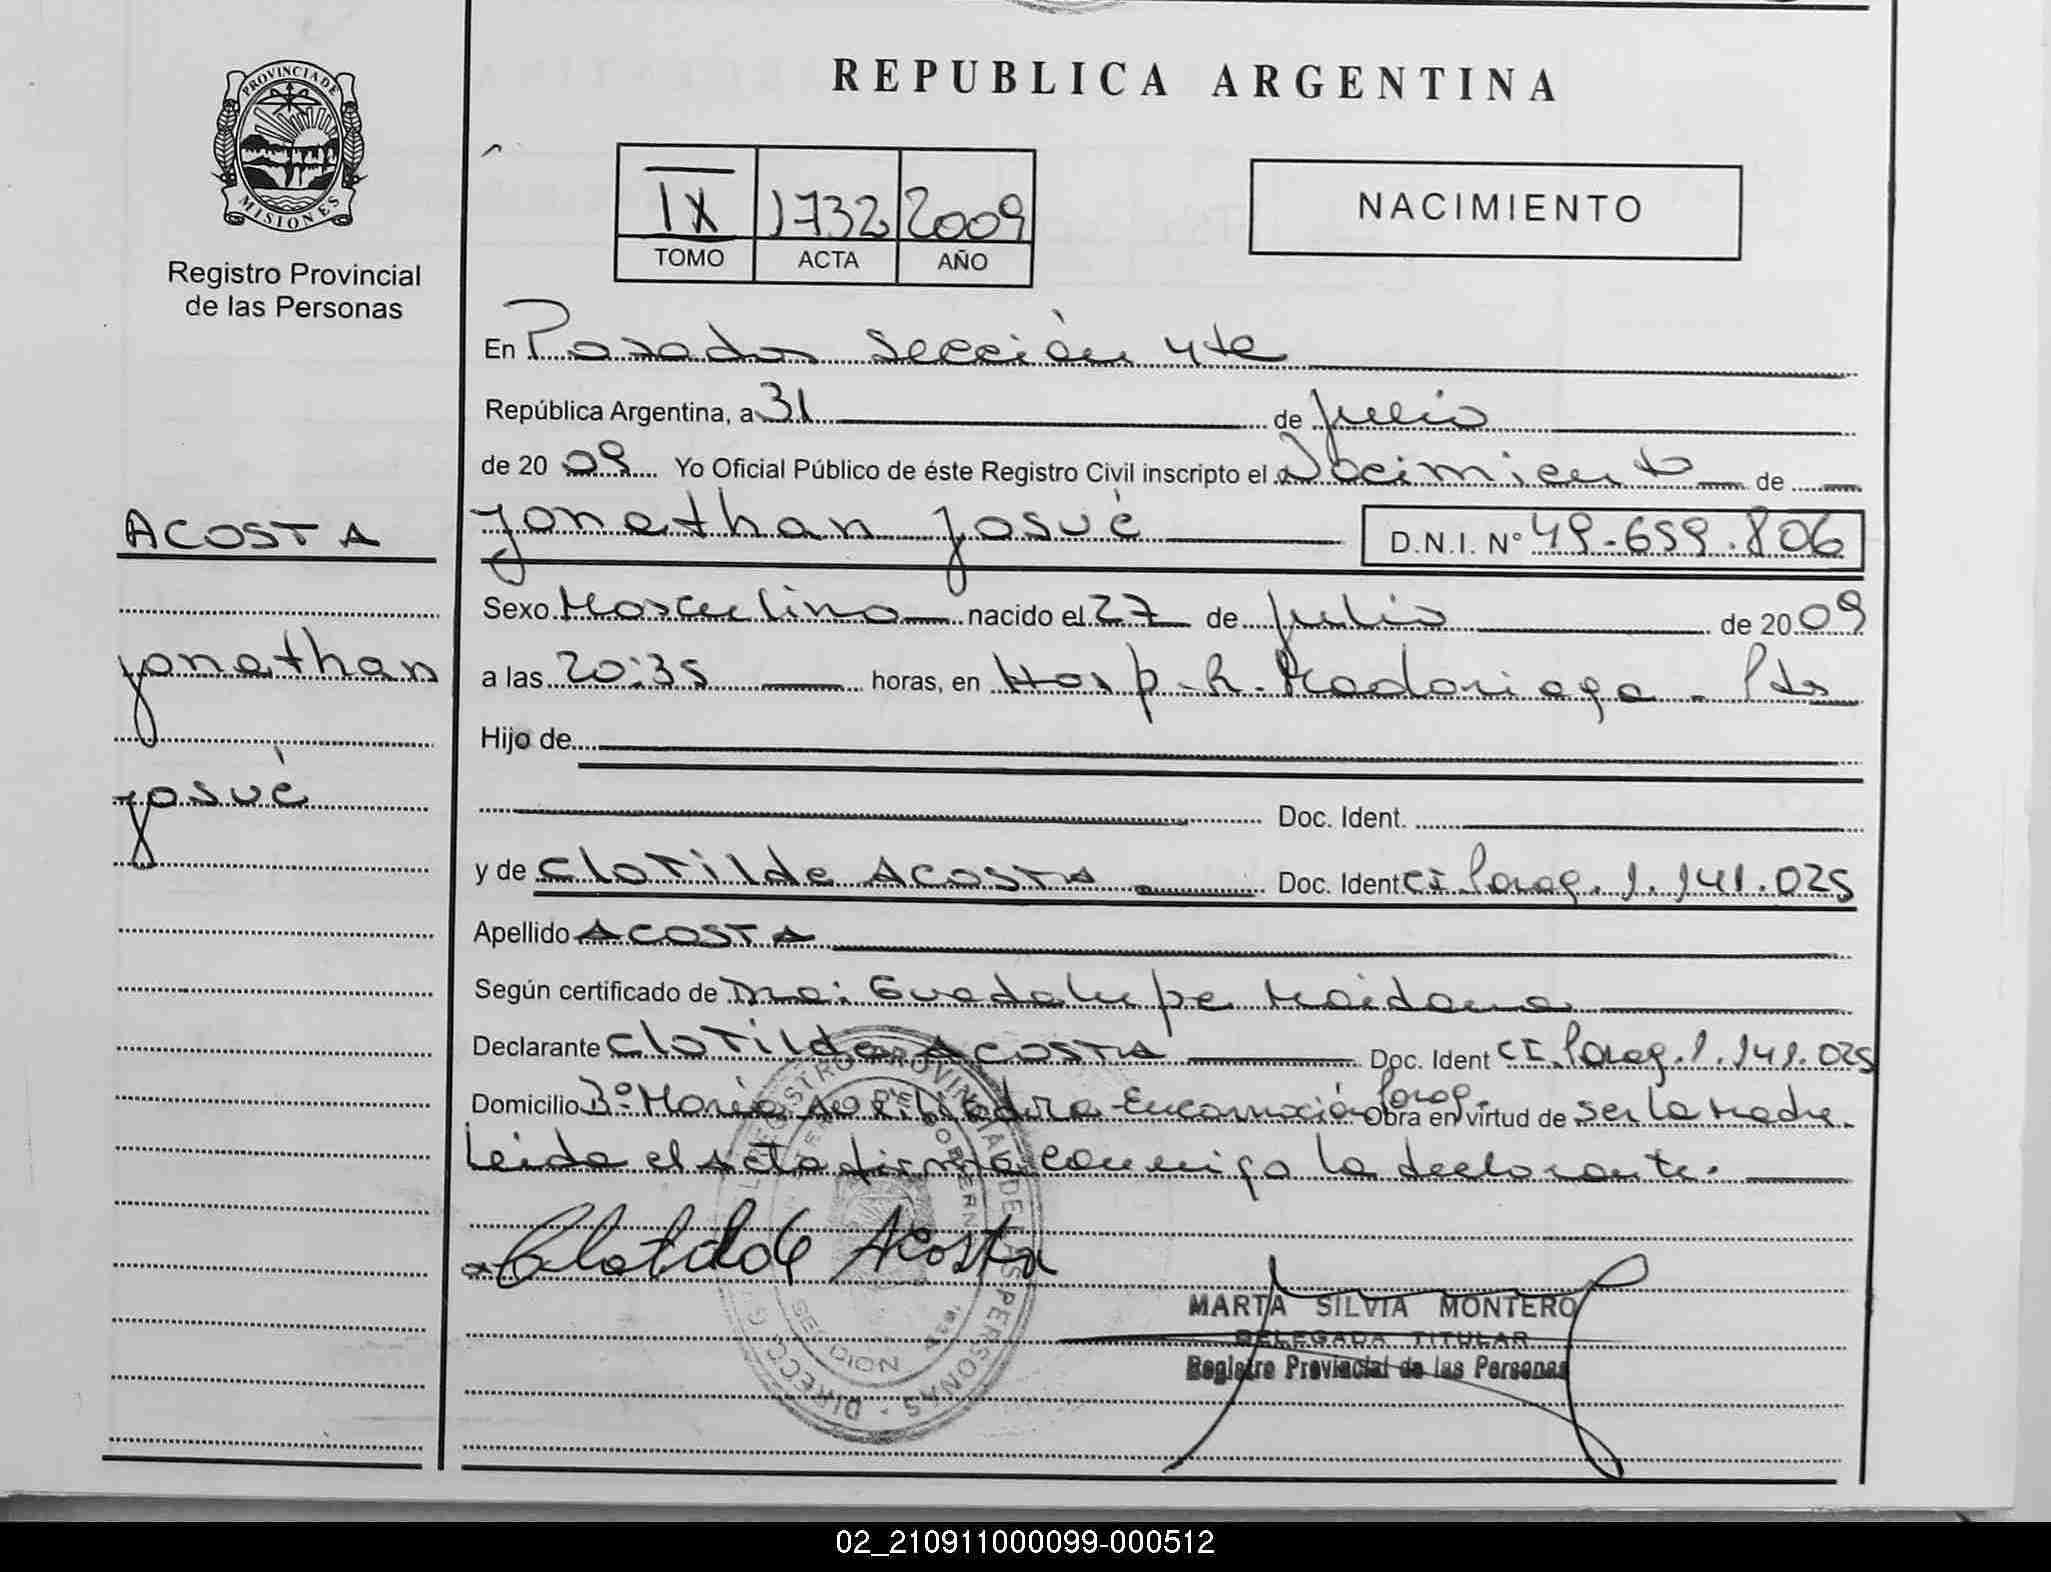 REPUBLICA ARGENTINA
PROVINCIA DE
MISIONES
Registro Provincial
de las Personas
IX 1732 2009
TOMO ACTA AÑO
NACIMIENTO
En Posadas Sección 4ta
República Argentina, a 31 de julio
de 20 09 Yo Oficial Público de éste Registro Civil inscripto el Nacimiento de
ACOSTA
Jonathan Josué D.N.I. Nº 49.659.806
Sexo Masculino nacido el 27 de Julio de 20 09
Jonathan
a las 20:35 horas, en Hosp. R. Madariaga - Pdas
Hijo de
Josué
Doc. Ident.
y de Clotilde Acosta Doc. Ident CI Parag. 1.141.025
Apellido ACOSTA
Según certificado de Dra: Guadalupe Maidana
Declarante Clotilde Acosta Doc. Ident CI Parag. 1.141.025
Domicilio Bº María Auxiliadora Encarnación Parag. Obra en virtud de ser la madre.
Leida el acta firma conmigo la declarante.
Clotilde Acosta
MARTA SILVIA MONTERO
DELEGADA TITULAR
Registro Provincial de las Personas
02_210911000099-000512